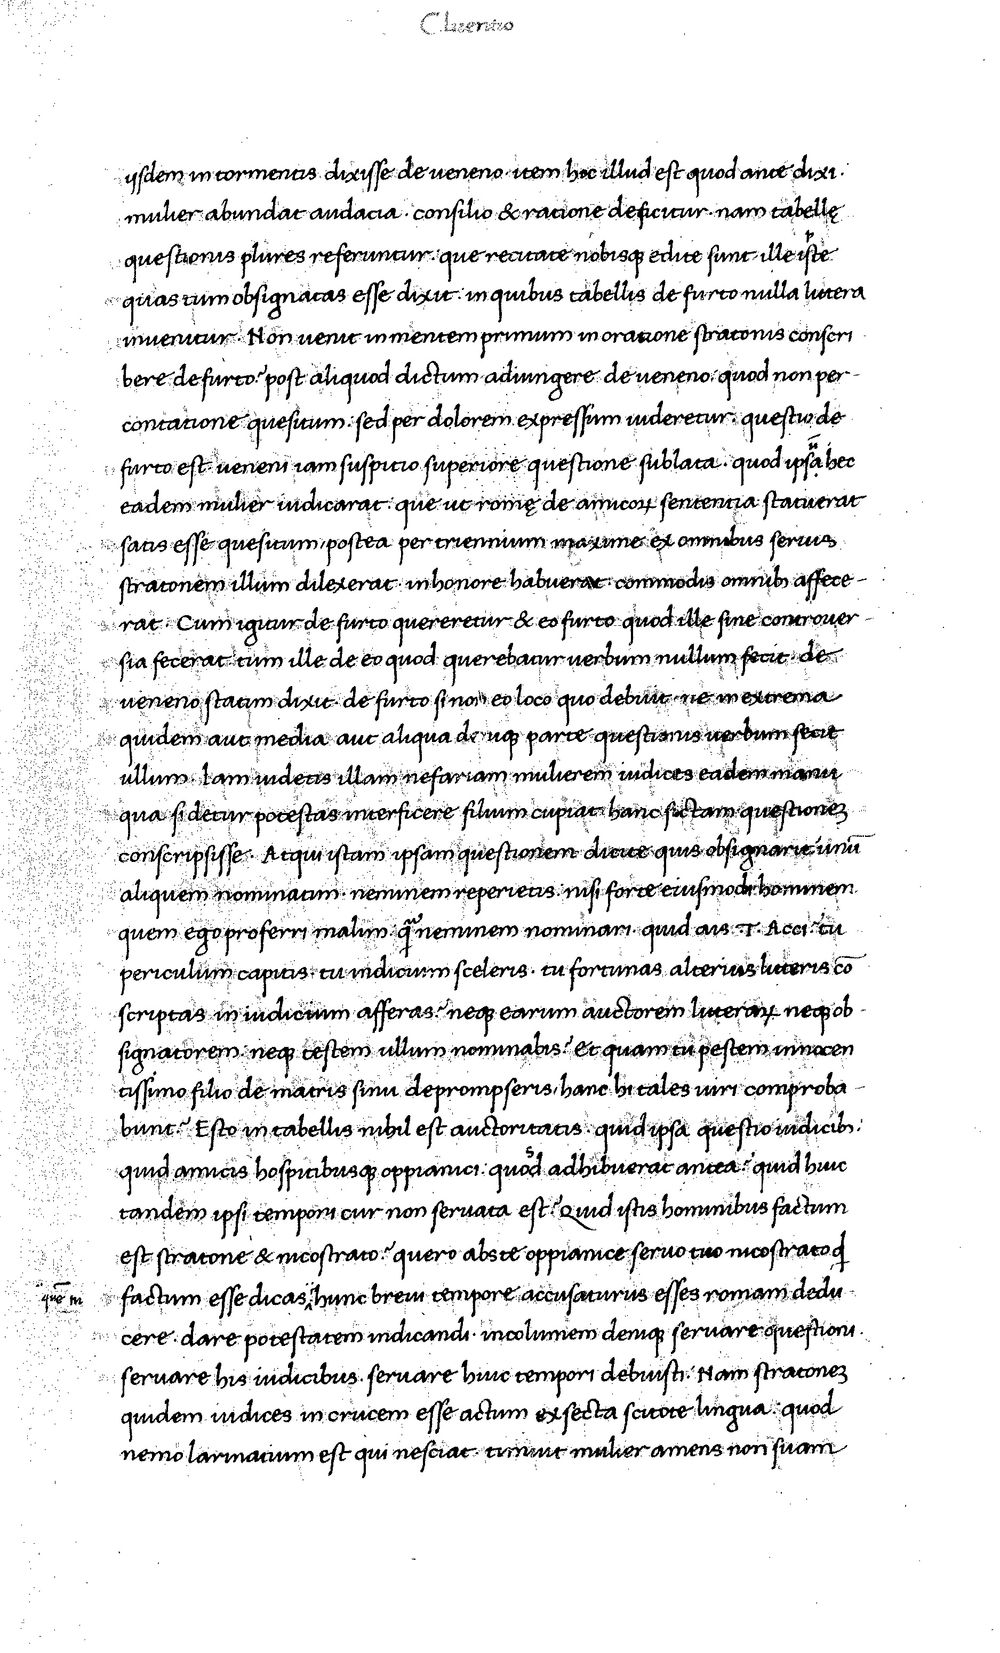 Cluentio
iisdem in tormentis dixisse de ueneno. item hoc illud est quod ante dixi.
mulier abundat audacia. consilio & ratione deficitur. nam tabellę
questionis plures referuntur. que recitate nobisq; edite sunt. ille iste
quas tum obsignatas esse dixit. in quibus tabellis de furto nulla littera
inuenitur. Non uenit in mentem primum in oratione stratonis conscri
bere de furto? post aliquod dictum adiungere de ueneno. quod non per-
contatione quesitum. sed per dolorem expressum uideretur. questio de
furto est. ueneni iam suspitio superiore questione sublata. quod ipsa hec
eadem mulier iudicarat. que ut romę de amicoꝝ sententia statuerat
satis esse quesitum, postea per triennium maxime ex omnibus seruis
stratonem illum dilexerat. in honore habuerat. commodis omnib; affece-
rat. Cum igitur de furto quereretur & eo furto quod ille sine controuer-
sia fecerat tum ille de eo quod querebatur uerbum nullum fecit. de
ueneno statim dixit. de furto si non eo loco quo debuit. ne in extrema
quidem aut media aut aliqua deniq; parte questionis uerbum fecit
ullum. Iam uidetis illam nefariam mulierem iudices eadem manu
qua si detur potestas interficere filium cupiat hanc fictam questionē
conscripsisse. Atqui istam ipsam questionem dicite quis obsignarit unū
aliquem nominatim. neminem reperietis. nisi forte eiusmodi hominem
quem ego proferri malim quā neminem nominari. quid ais .T. Acci? tu
periculum capitis. tu indicium sceleris. tu fortunas alterius litteris cō
scriptas in iudicium afferas? neq; earum auctorem litteraꝝ neq; ob-
signatorem. neq; testem ullum nominabis? Et quam tu pestem innocen
tissimo filio de matris sinu deprompseris, hanc hi tales uiri comproba-
bunt? Esto in tabellis nihil est auctoritatis. quid ipsa questio iudicib;.
quid amicis hospitibusq; oppianici. quos adhibuerat antea? quid huic
tandem ipsi tempori cur non seruata est? Quid istis hominibus factum
est stratone & nicostrato? quero abs te oppianice seruo tuo nicostrato qd
quō m
factum esse dicas, hunc breui tempore accusaturus esses romam dedu
cere. dare potestatem indicandi. incolumem deniq; seruare questioni.
seruare his iudicibus. seruare huic tempori debuisti. Nam stratonē
quidem iudices in crucem esse actum exsecta scitote lingua. quod
nemo larinatium est qui nesciat. timuit mulier amens non suam